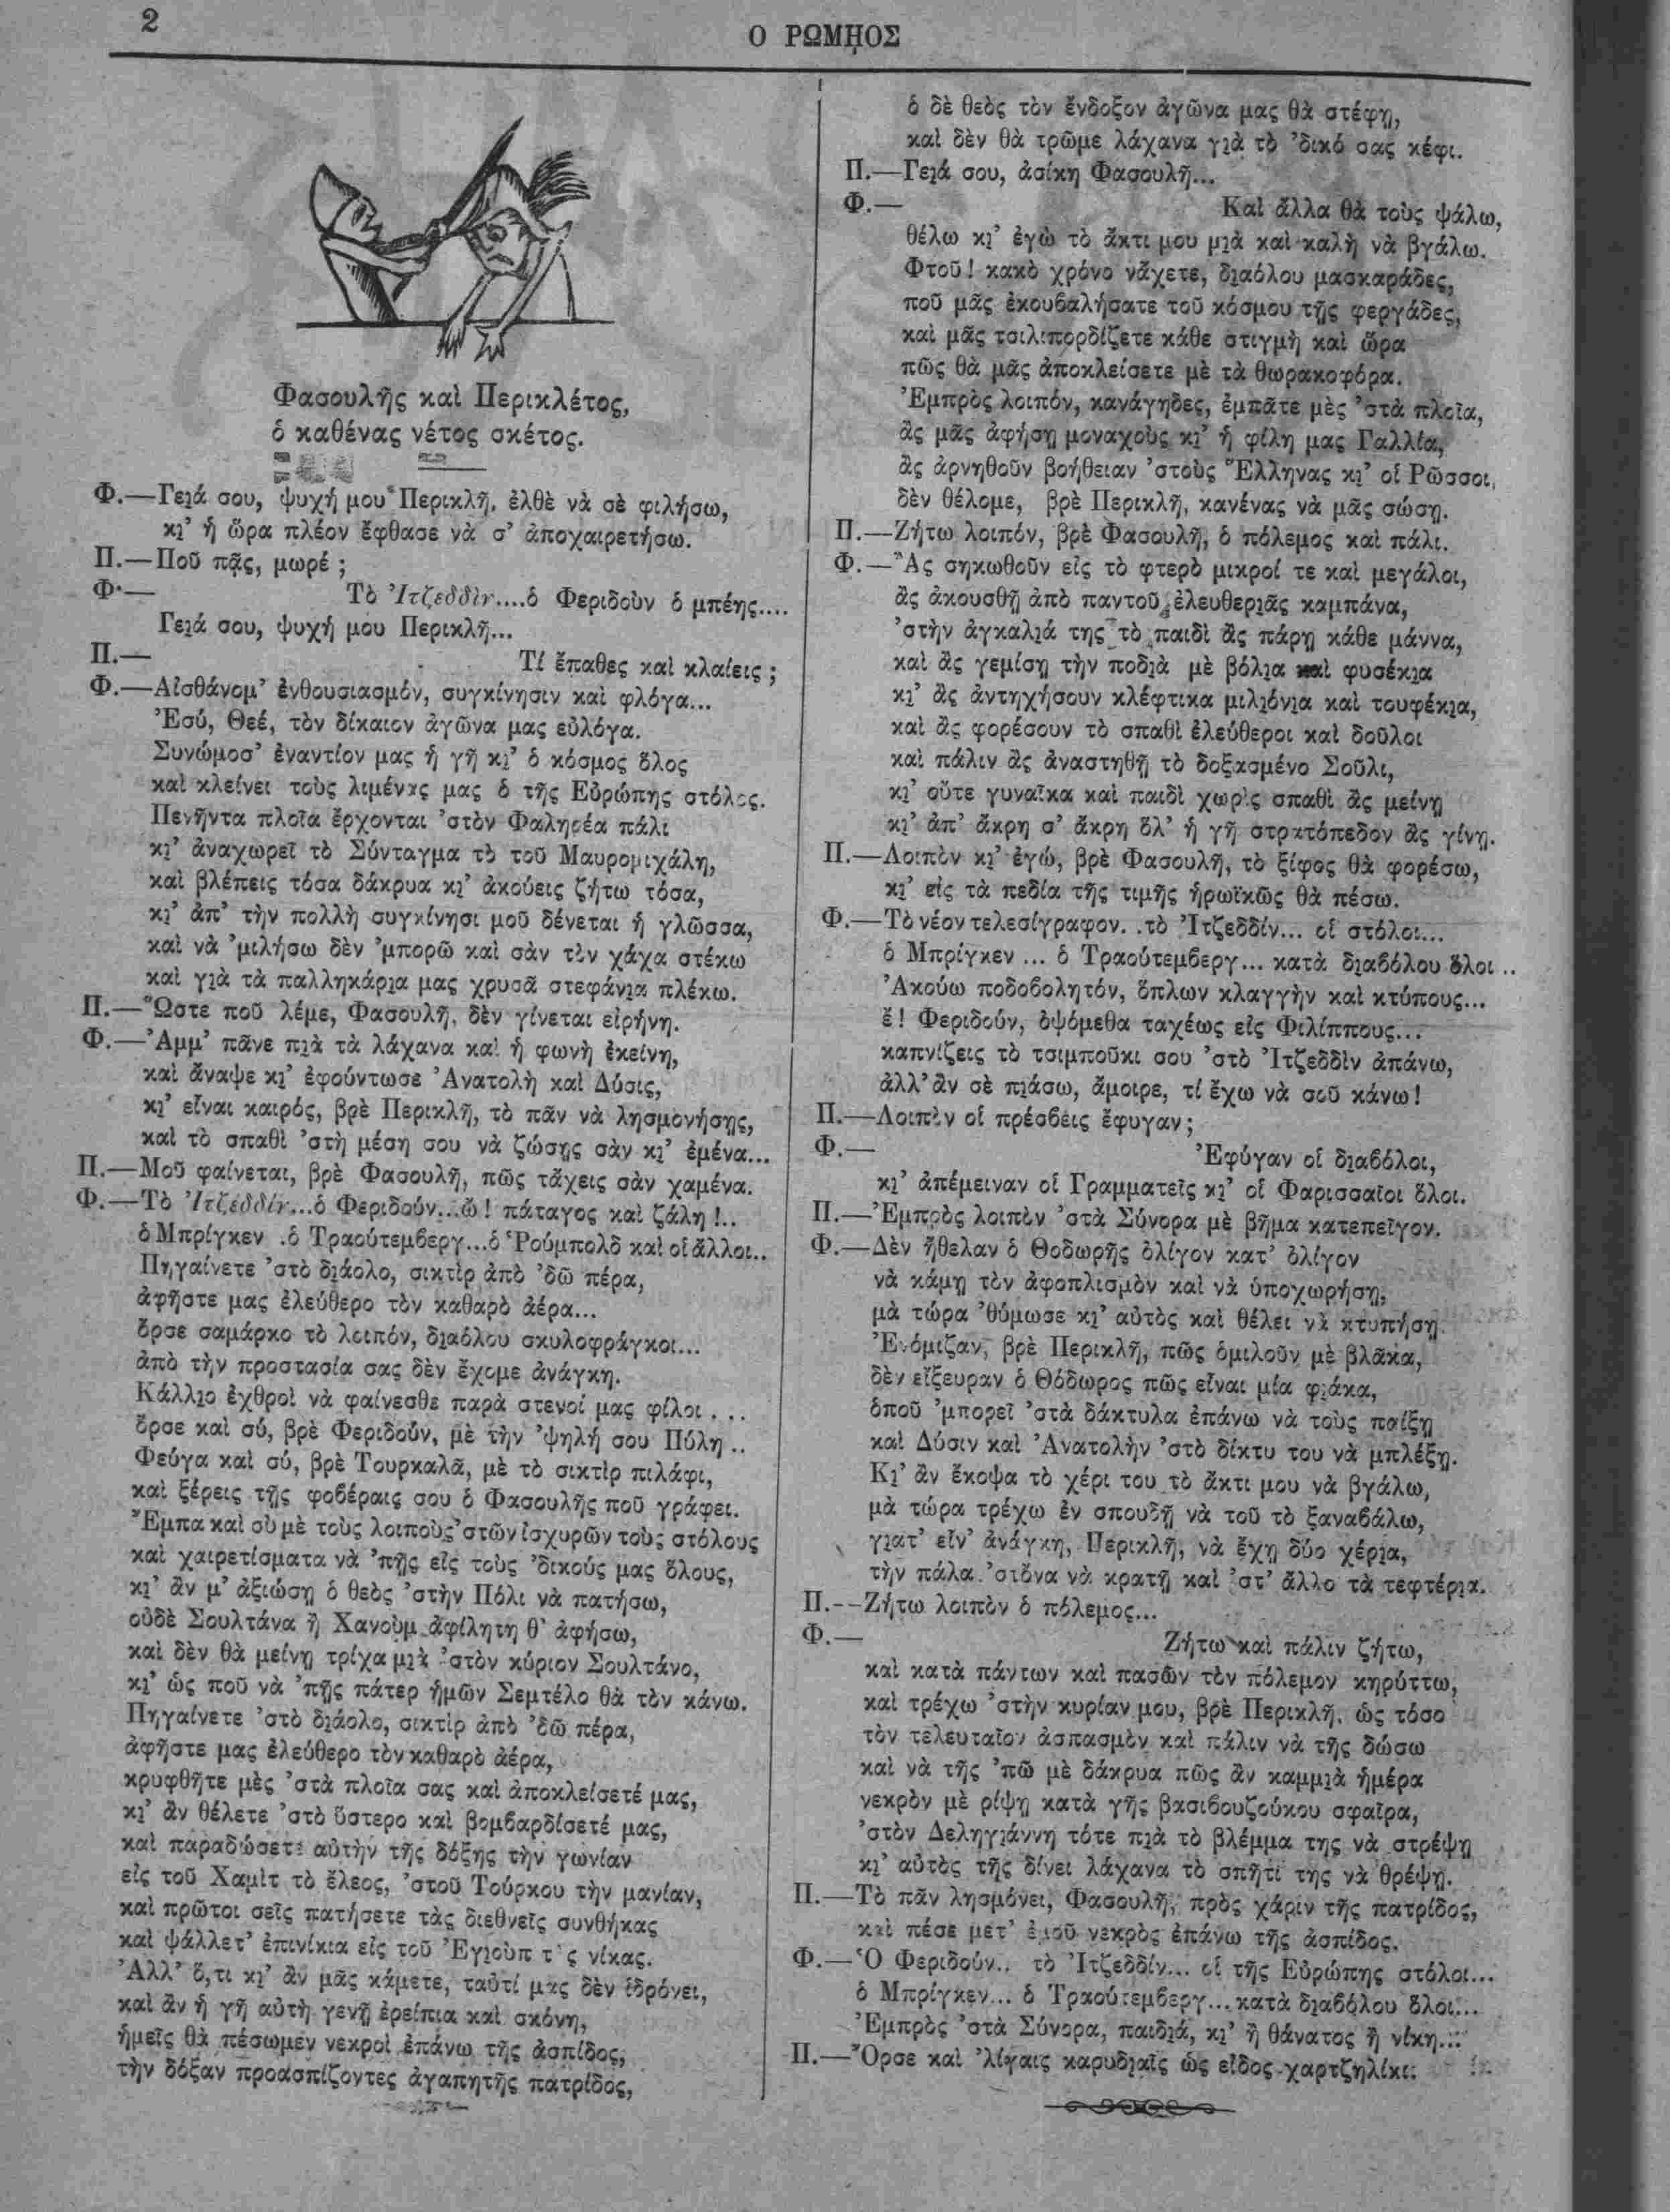 2
Ο ΡΩΜῌΟΣ
Φασουλῆς καὶ Περικλέτος,
ὁ καθένας νέτος σκέτος.
Φ.—Γειά σου, ψυχή μου Περικλῆ, ἐλθὲ νὰ σὲ φιλήσω,
κι’ ἡ ὥρα πλέον ἔφθασε νὰ σ’ ἀποχαιρετήσω.
Π.—Ποῦ πᾷς, μωρέ ;
Φ.— Τὸ Ἰτζεδδὶν....ὁ Φεριδοὺν ὁ μπέης....
Γειά σου, ψυχή μου Περικλῆ...
Π.— Τί ἔπαθες καὶ κλαίεις ;
Φ.—Αἰσθάνομ’ ἐνθουσιασμόν, συγκίνησιν καὶ φλόγα...
Ἐσύ, Θεέ, τὸν δίκαιον ἀγῶνα μας εὐλόγα.
Συνώμοσ’ ἐναντίον μας ἡ γῆ κι’ ὁ κόσμος ὅλος
καὶ κλείνει τοὺς λιμένας μας ὁ τῆς Εὐρώπης στόλος.
Πενῆντα πλοῖα ἔρχονται ’στὸν Φαληρέα πάλι
κι’ ἀναχωρεῖ τὸ Σύνταγμα τὸ τοῦ Μαυρομιχάλη,
καὶ βλέπεις τόσα δάκρυα κι’ ἀκούεις ζήτω τόσα,
κι’ ἀπ’ τὴν πολλὴ συγκίνησι μοῦ δένεται ἡ γλῶσσα,
καὶ νὰ ’μιλήσω δὲν ’μπορῶ καὶ σὰν τὸν χάχα στέκω
καὶ γιὰ τὰ παλληκάρια μας χρυσᾶ στεφάνια πλέκω.
Π.—Ὥστε ποῦ λέμε, Φασουλῆ, δὲν γίνεται εἰρήνη.
Φ.—Ἀμμ’ πᾶνε πιὰ τὰ λάχανα καὶ ἡ φωνὴ ἐκείνη,
καὶ ἄναψε κι’ ἐφούντωσε Ἀνατολὴ καὶ Δύσις,
κι’ εἶναι καιρός, βρὲ Περικλῆ, τὸ πᾶν νὰ λησμονήσῃς,
καὶ τὸ σπαθὶ ’στὴ μέση σου νὰ ζώσῃς σὰν κι’ ἐμένα...
Π.—Μοῦ φαίνεται, βρὲ Φασουλῆ, πῶς τἄχεις σὰν χαμένα.
Φ.—Τὸ Ἰτζεδδίν...ὁ Φεριδούν...ὤ! πάταγος καὶ ζάλη!..
ὁ Μπρίγκεν .ὁ Τραούτεμβεργ...ὁ Ῥούμπολδ καὶ οἱ ἄλλοι..
Πηγαίνετε ’στὸ διάολο, σικτὶρ ἀπὸ ’δῶ πέρα,
ἀφῆστε μας ἐλεύθερο τὸν καθαρὸ ἀέρα...
ὄρσε σαμάρκο τὸ λοιπόν, διαόλου σκυλοφράγκοι...
ἀπὸ τὴν προστασία σας δὲν ἔχομε ἀνάγκη.
Κάλλιο ἐχθροὶ νὰ φαίνεσθε παρὰ στενοί μας φίλοι...
ὄρσε καὶ σύ, βρὲ Φεριδούν, μὲ τὴν ’ψηλή σου Πύλη..
Φεύγα καὶ σύ, βρὲ Τουρκαλᾶ, μὲ τὸ σικτὶρ πιλάφι,
καὶ ξέρεις τῇς φοβέραις σου ὁ Φασουλῆς ποῦ γράφει.
Ἔμπα καὶ σὺ μὲ τοὺς λοιποὺς ’στῶν ἰσχυρῶν τοὺς στόλους
καὶ χαιρετίσματα νὰ ’πῇς εἰς τοὺς ’δικούς μας ὅλους,
κι’ ἂν μ’ ἀξιώσῃ ὁ θεὸς ’στὴν Πόλι νὰ πατήσω,
οὐδὲ Σουλτάνα ἢ Χανοὺμ ἀφίλητη θ’ ἀφήσω,
καὶ δὲν θὰ μείνῃ τρίχα μιὰ ’στὸν κύριον Σουλτάνο,
κι’ ὡς ποῦ νὰ ’πῇς πάτερ ἡμῶν Σεμτέλο θὰ τὸν κάνω.
Πηγαίνετε ’στὸ διάολο, σικτὶρ ἀπὸ ’δῶ πέρα,
ἀφῆστε μας ἐλεύθερο τὸν καθαρὸ ἀέρα,
κρυφθῆτε μὲς ’στὰ πλοῖα σας καὶ ἀποκλείσετέ μας,
κι’ ἂν θέλετε ’στὸ ὕστερο καὶ βομβαρδίσετέ μας,
καὶ παραδώσετε αὐτὴν τῆς δόξης τὴν γωνίαν
εἰς τοῦ Χαμὶτ τὸ ἔλεος, ’στοῦ Τούρκου τὴν μανίαν,
καὶ πρῶτοι σεῖς πατήσετε τὰς διεθνεῖς συνθήκας
καὶ ψάλλετ’ ἐπινίκια εἰς τοῦ Ἐγιοὺπ τὰς νίκας.
Ἀλλ’ ὅ,τι κι’ ἂν μᾶς κάμετε, ταὐτί μας δὲν ἱδρόνει,
καὶ ἂν ἡ γῆ αὐτὴ γενῇ ἐρείπια καὶ σκόνη,
ἡμεῖς θὰ πέσωμεν νεκροὶ ἐπάνω τῆς ἀσπίδος,
τὴν δόξαν προασπίζοντες ἀγαπητῆς πατρίδος,
ὁ δὲ θεὸς τὸν ἔνδοξον ἀγῶνα μας θὰ στέφῃ,
καὶ δὲν θὰ τρῶμε λάχανα γιὰ τὸ ’δικό σας κέφι.
Π.—Γειά σου, ἀσίκη Φασουλῆ...
Φ.— Καὶ ἄλλα θὰ τοὺς ψάλω,
θέλω κι’ ἐγὼ τὸ ἄκτι μου μιὰ καὶ καλὴ νὰ βγάλω.
Φτοῦ! κακὸ χρόνο νἄχετε, διαόλου μασκαράδες,
ποῦ μᾶς ἐκουβαλήσατε τοῦ κόσμου τῇς φεργάδες,
καὶ μᾶς τσιλιπορδίζετε κάθε στιγμὴ καὶ ὥρα
πῶς θὰ μᾶς ἀποκλείσετε μὲ τὰ θωρακοφόρα.
Ἐμπρὸς λοιπόν, κανάγηδες, ἐμπᾶτε μὲς ’στὰ πλοῖα,
ἂς μᾶς ἀφήσῃ μοναχοὺς κι’ ἡ φίλη μας Γαλλία,
ἂς ἀρνηθοῦν βοήθειαν ’στοὺς Ἕλληνας κι’ οἱ Ρῶσσοι,
δὲν θέλομε, βρὲ Περικλῆ, κανένας νὰ μᾶς σώσῃ.
Π.—Ζήτω λοιπόν, βρὲ Φασουλῆ, ὁ πόλεμος καὶ πάλι.
Φ.—Ἂς σηκωθοῦν εἰς τὸ φτερὸ μικροί τε καὶ μεγάλοι,
ἂς ἀκουσθῇ ἀπὸ παντοῦ ἐλευθεριᾶς καμπάνα,
’στὴν ἀγκαλιά της τὸ παιδὶ ἂς πάρῃ κάθε μάννα,
καὶ ἂς γεμίσῃ τὴν ποδιὰ μὲ βόλια καὶ φυσέκια
κι’ ἂς ἀντηχήσουν κλέφτικα μιλιόνια καὶ τουφέκια,
καὶ ἂς φορέσουν τὸ σπαθὶ ἐλεύθεροι καὶ δοῦλοι
καὶ πάλιν ἂς ἀναστηθῇ τὸ δοξασμένο Σοῦλι,
κι’ οὔτε γυναῖκα καὶ παιδὶ χωρὶς σπαθὶ ἂς μείνῃ
κι’ ἀπ’ ἄκρη σ’ ἄκρη ὅλ’ ἡ γῆ στρατόπεδον ἂς γίνῃ.
Π.—Λοιπὸν κι’ ἐγώ, βρὲ Φασουλῆ, τὸ ξίφος θὰ φορέσω,
κι’ εἰς τὰ πεδία τῆς τιμῆς ἡρωϊκῶς θὰ πέσω.
Φ.—Τὸ νέον τελεσίγραφον. .τὸ Ἰτζεδδίν... οἱ στόλοι...
ὁ Μπρίγκεν ... ὁ Τραούτεμβεργ... κατὰ διαβόλου ὅλοι ..
Ἀκούω ποδοβολητόν, ὅπλων κλαγγὴν καὶ κτύπους...
ἔ! Φεριδούν, ὀψόμεθα ταχέως εἰς Φιλίππους...
καπνίζεις τὸ τσιμποῦκι σου ’στὸ Ἰτζεδδὶν ἀπάνω,
ἀλλ’ ἂν σὲ πιάσω, ἄμοιρε, τί ἔχω νὰ σοῦ κάνω!
Π.—Λοιπὸν οἱ πρέσβεις ἔφυγαν;
Φ.— Ἐφύγαν οἱ διαβόλοι,
κι’ ἀπέμειναν οἱ Γραμματεῖς κι’ οἱ Φαρισσαῖοι ὅλοι.
Π.—Ἐμπρὸς λοιπὸν ’στὰ Σύνορα μὲ βῆμα κατεπεῖγον.
Φ.—Δὲν ἤθελαν ὁ Θοδωρῆς ὀλίγον κατ’ ὀλίγον
νὰ κάμῃ τὸν ἀφοπλισμὸν καὶ νὰ ὑποχωρήσῃ,
μὰ τώρα ’θύμωσε κι’ αὐτὸς καὶ θέλει νὰ κτυπήσῃ.
Ἐνόμιζαν, βρὲ Περικλῆ, πῶς ὁμιλοῦν μὲ βλᾶκα,
δὲν εἴξευραν ὁ Θόδωρος πῶς εἶναι μία φιάκα,
ὁποῦ ’μπορεῖ ’στὰ δάκτυλα ἐπάνω νὰ τοὺς παίξῃ
καὶ Δύσιν καὶ Ἀνατολὴν ’στὸ δίκτυ του νὰ μπλέξῃ.
Κι’ ἂν ἔκοψα τὸ χέρι του τὸ ἄκτι μου νὰ βγάλω,
μὰ τώρα τρέχω ἐν σπουδῇ νὰ τοῦ τὸ ξαναβάλω,
γιατ’ εἶν’ ἀνάγκη, Περικλῆ, νὰ ἔχῃ δύο χέρια,
τὴν πάλα ’στὄνα νὰ κρατῇ καὶ ’στ’ ἄλλο τὰ τεφτέρια.
Π.--Ζήτω λοιπὸν ὁ πόλεμος...
Φ.— Ζήτω καὶ πάλιν ζήτω,
καὶ κατὰ πάντων καὶ πασῶν τὸν πόλεμον κηρύττω,
καὶ τρέχω ’στὴν κυρίαν μου, βρὲ Περικλῆ, ὡς τόσο
τὸν τελευταῖον ἀσπασμὸν καὶ πάλιν νὰ τῆς δώσω
καὶ νὰ τῆς ’πῶ μὲ δάκρυα πῶς ἂν καμμιὰ ἡμέρα
νεκρὸν μὲ ρίψῃ κατὰ γῆς βασιβουζούκου σφαῖρα,
’στὸν Δεληγιάννη τότε πιὰ τὸ βλέμμα της νὰ στρέψῃ
κι’ αὐτὸς τῆς δίνει λάχανα τὸ σπῆτί της νὰ θρέψῃ.
Π.—Τὸ πᾶν λησμόνει, Φασουλῆ, πρὸς χάριν τῆς πατρίδος,
καὶ πέσε μετ’ ἐμοῦ νεκρὸς ἐπάνω τῆς ἀσπίδος.
Φ.—Ὁ Φεριδούν.. τὸ Ἰτζεδδίν... οἱ τῆς Εὐρώπης στόλοι...
ὁ Μπρίγκεν... ὁ Τραούτεμβεργ...κατὰ διαβόλου ὅλοι...
Ἐμπρὸς ’στὰ Σύνορα, παιδιά, κι’ ἢ θάνατος ἢ νίκη...
Π.—Ὄρσε καὶ ’λίγαις καρυδιαῖς ὡς εἶδος χαρτζηλίκι.